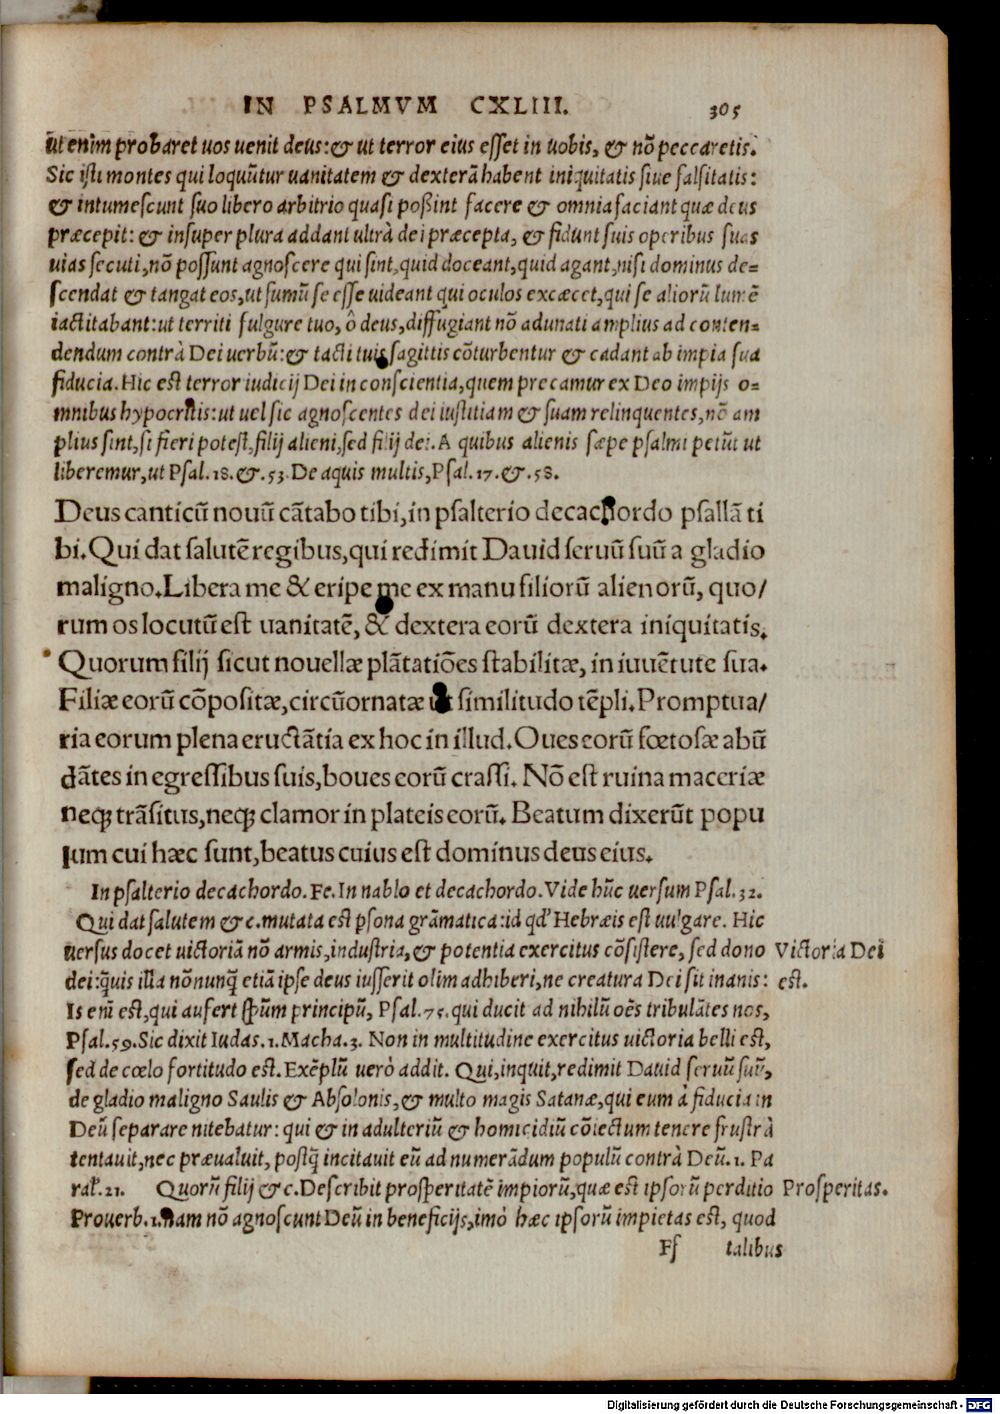 IN PSALMVM CXLIII. 305
ut enim probaret uos uenit deus: & ut terror eius esset in uobis, & nõ peccaretis.
Sic isti montes qui loquũtur uanitatem & dexterã habent iniquitatis siue falsitatis:
& intumescunt suo libero arbitrio quasi poßint facere & omnia faciant quæ deus
præcepit: & insuper plura addant ultrà dei præcepta, & fidunt suis operibus suas
uias secuti, nõ possunt agnoscere qui sint, quid doceant, quid agant, nisi dominus de=
scendat & tangat eos, ut fumũ se esse uideant qui oculos excæcet, qui se aliorũ lumẽ
iactitabant: ut territi fulgure tuo, ô deus, diffugiant nõ adunati amplius ad conten=
dendum contrà Dei uerbũ: & tacti tuis sagittis cõturbentur & cadant ab impia sua
fiducia. Hic est terror iudicij Dei in conscientia, quem precamur ex Deo impijs o=
mnibus hypocritis: ut uel sic agnoscentes dei iustitiam & suam relinquentes, nõ am
plius sint, si fieri potest, filij alieni, sed filij dei. A quibus alienis sæpe psalmi petũt ut
liberemur, ut Psal. 18. &. 53. De aquis multis, Psal. 17. &. 58.
Deus canticũ nouũ cãtabo tibi, in psalterio decachordo psallã ti
bi. Qui dat salutẽ regibus, qui redimit Dauid seruũ suũ a gladio
maligno. Libera me & eripe me ex manu filiorũ alienorũ, quo/
rum os locutũ est uanitatẽ, & dextera eorũ dextera iniquitatis.
Quorum filij sicut nouellæ plãtatiões stabilitæ, in iuuẽtute sua.
Filiæ eorũ cõpositæ, circũornatæ ut similitudo tẽpli. Promptua/
ria eorum plena eructãtia ex hoc in illud. Oues eorũ fœtosæ abũ
dãtes in egressibus suis, boues eorũ crassi. Nõ est ruina maceriæ
neq; trãsitus, neq; clamor in plateis eorũ. Beatum dixerũt popu
lum cui hæc sunt, beatus cuius est dominus deus eius.
In psalterio decachordo. Fe. In nablo et decachordo. Vide hũc uersum Psal. 32.
Qui dat salutem & c. mutata est psona grãmatica: id qd' Hebræis est uulgare. Hic
uersus docet uictoriã nõ armis, industria, & potentia exercitus cõsistere, sed dono Victoria Dei
dei: q̃uis illa nõnunq̃ etiã ipse deus iusserit olim adhiberi, ne creatura Dei sit inanis: est.
Is em̃ est, qui aufert spũm principũ, Psal. 75. qui ducit ad nihilũ oẽs tribulãtes nos,
Psal. 59. Sic dixit Iudas. 1. Macha. 3. Non in multitudine exercitus uictoria belli est,
sed de cœlo fortitudo est. Exẽplũ uerò addit. Qui, inquit, redimit Dauid seruũ suũ,
de gladio maligno Saulis & Absolonis, & multo magis Satanæ, qui eum à fiducia in
Deũ separare nitebatur: qui & in adulteriũ & homicidiũ cõiectum tenere frustrà
tentauit, nec præualuit, postq̃ incitauit eũ ad numerãdum populũ contrà Deũ. 1. Pa
ral. 21. Quorũ filij & c. Describit prosperitatẽ impiorũ, quæ est ipsorũ perditio Prosperitas.
Prouerb. 1. Nam nõ agnoscunt Deũ in beneficijs, imò hæc ipsorũ impietas est, quod
Ff talibus
Digitalisierung gefördert durch die Deutsche Forschungsgemeinschaft - DFG